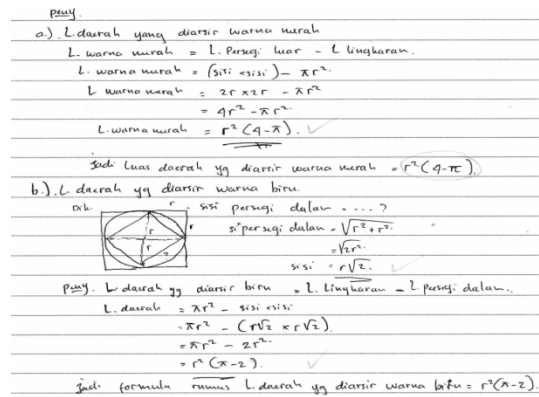 peny.
a.) L daerah yang diarsir warna merah
L. warna merah = L. Persegi luar - L lingkaran.
L. warna merah = (sisi × sisi) - πr².
L warna merah = 2r × 2r - πr²
= 4r² - πr²
L. warna merah = r² (4-π).
Jadi Luas daerah yg diarsir warna merah = r² (4-π).
b.). L daerah yg diarsir warna biru
Dik. r . sisi persegi dalam .....?
r r r
si persegi dalam = √r² + r²
= √2r².
sisi = r√2.
peny. L. daerah yg diarsir biru = L. Lingkaran - L persegi dalam.
L. daerah = πr² - sisi × sisi
= πr² - (r√2 × r√2).
= πr² - 2r².
= r² (π-2).
Jadi formula rumus L. daerah yg diarsir warna biru = r² (π-2).